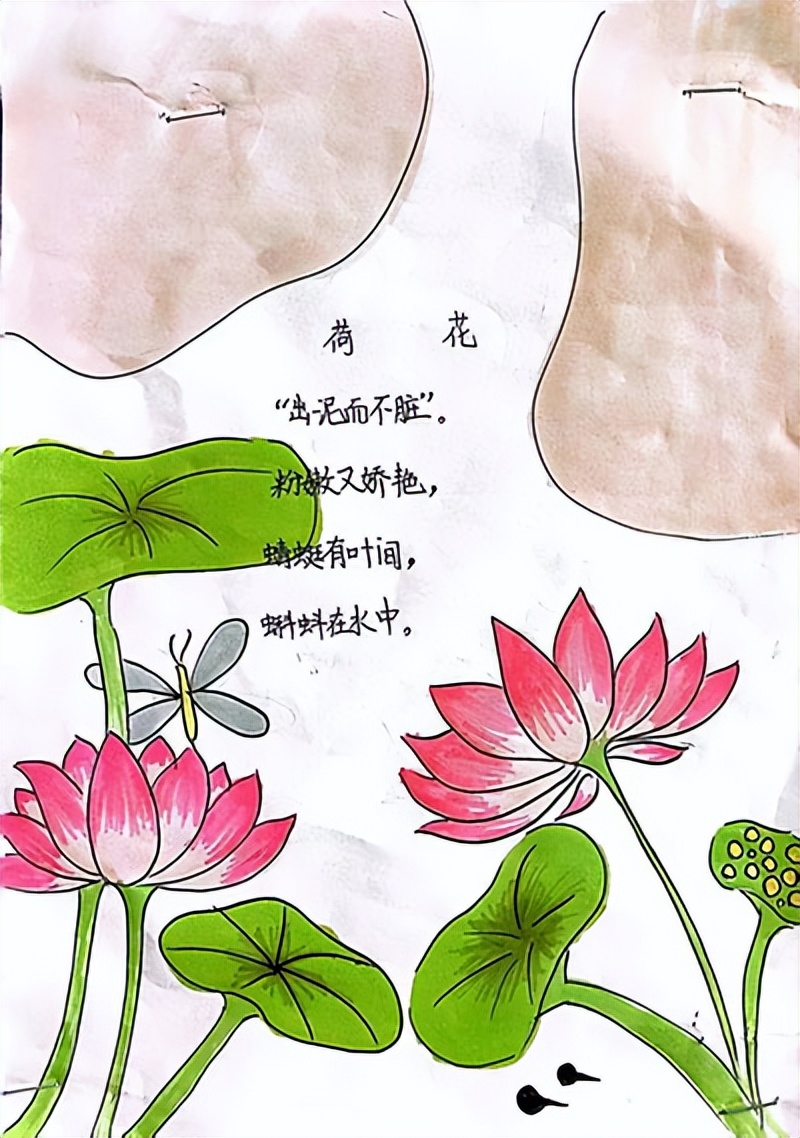 荷 花
“出泥而不脏”。
粉嫩又娇艳，
蜻蜓有叶间，
蝌蚪在水中。